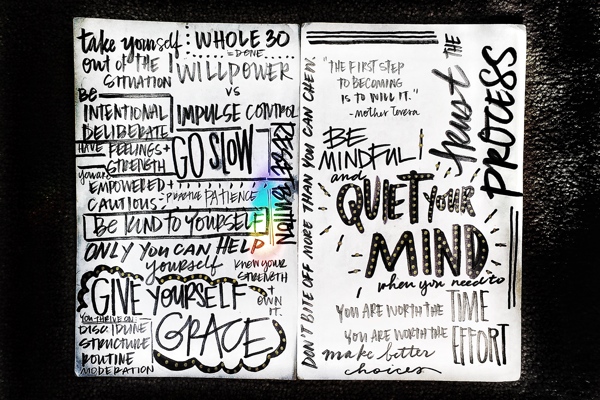 take yourself
out of the
SITUATION
: WHOLE 30
= DONE
WILLPOWER
VS
IMPULSE CONTROL
BE
INTENTIONAL
DELIBERATE
HAVE FEELINGS +
STRENGTH
GO SLOW
RESET BUTTON
EMPOWERED +
CAUTIOUS
- PRACTICE PATIENCE
BE KIND TO YOURSELF
ONLY YOU CAN HELP
yourself
KNOW YOUR
STRENGTH
+ OWN
IT.
GIVE YOURSELF
GRACE
YOU THRIVE ON
DISCIPLINE
STRUCTURE
ROUTINE
MODERATION
DON'T BITE OFF MORE THAN YOU CAN CHEW.
"THE FIRST STEP
TO BECOMING
IS TO WILL IT."
-mother teresa
trust THE
PROCESS
BE
MINDFUL!
and
QUIET your
MIND
when you need to
YOU ARE WORTH THE TIME
YOU ARE WORTH THE EFFORT
make better
choices